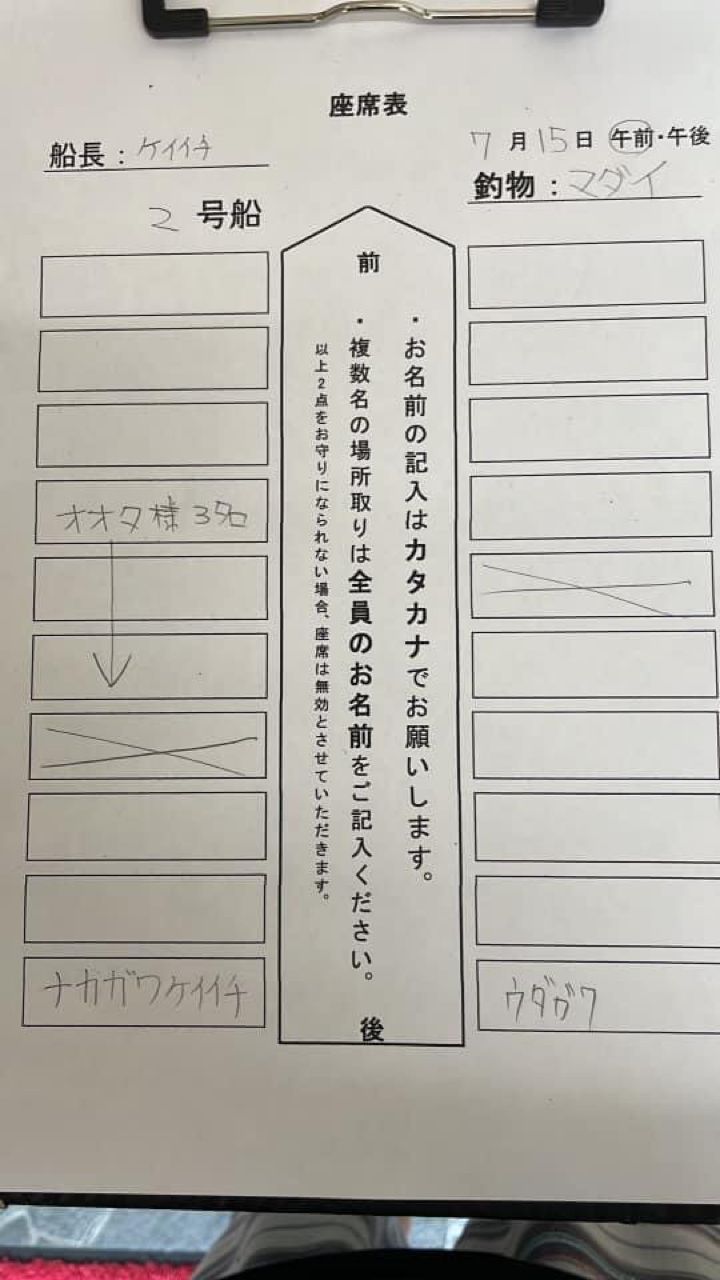 座席表
船長：ケイイチ
7月15日 午前・午後
釣物：マダイ
2号船
前
・お名前の記入はカタカナでお願いします。
・複数名の場所取りは全員のお名前をご記入ください。
以上2点をお守りになられない場合、座席は無効とさせていただきます。
後
オオタ様3名
ナカガワケイイチ
ウダガワ